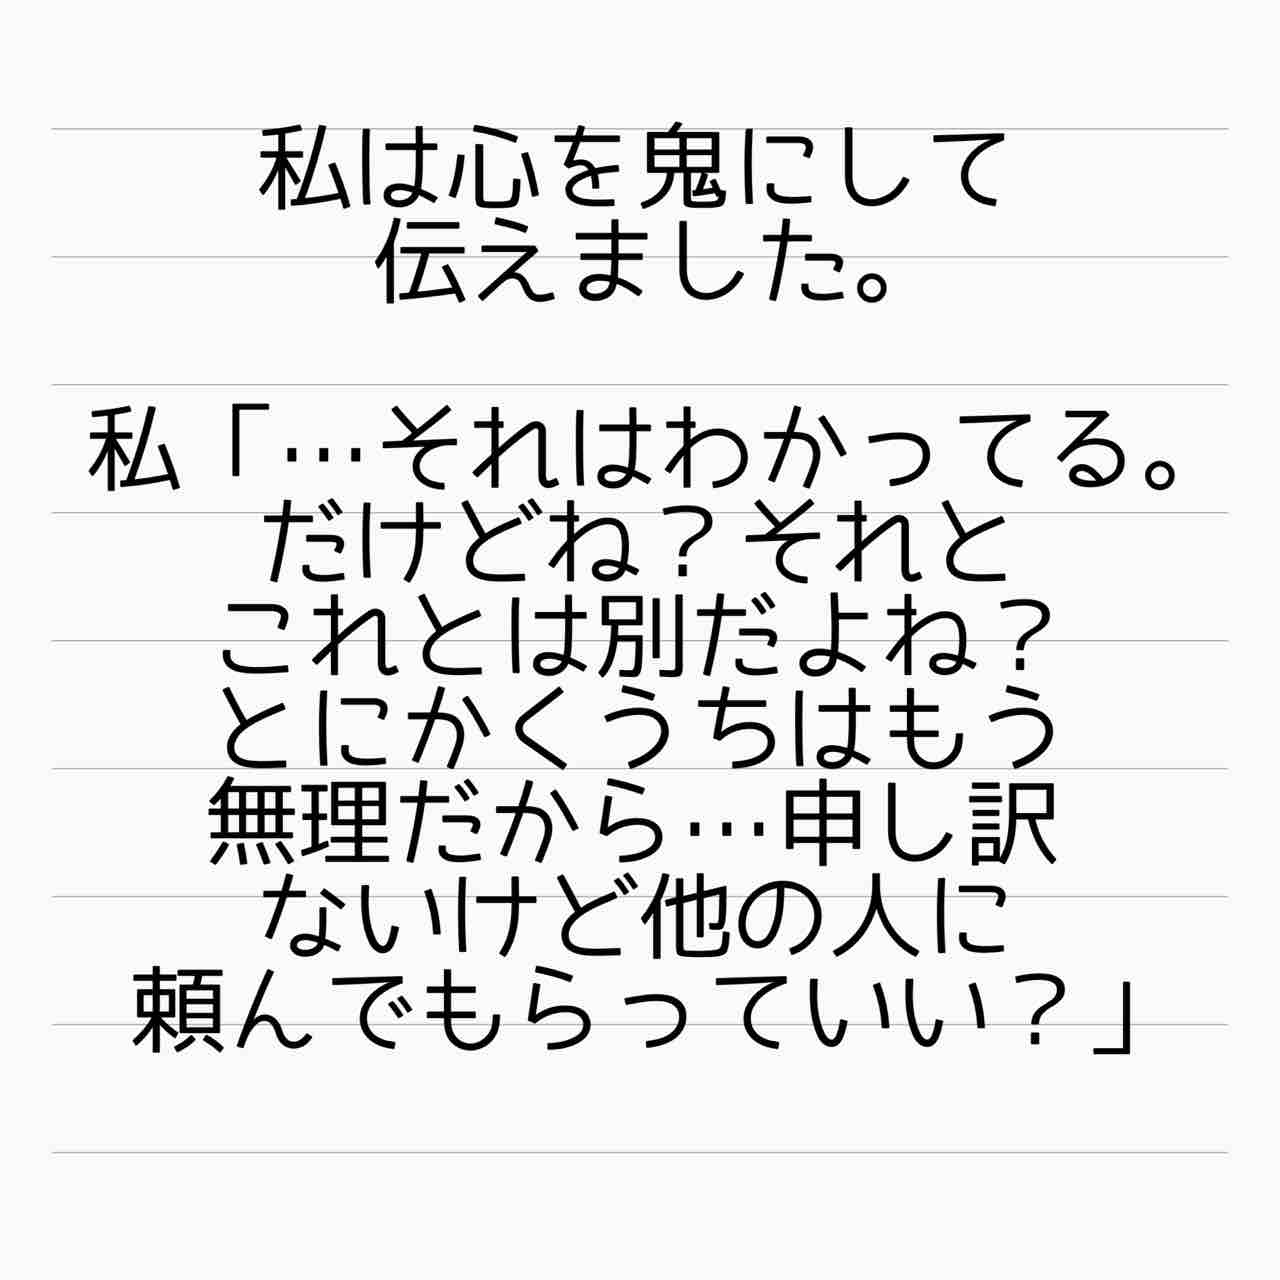 私は心を鬼にして
伝えました。
私「…それはわかってる。
だけどね？それと
これとは別だよね？
とにかくうちはもう
無理だから…申し訳
ないけど他の人に
頼んでもらっていい？」